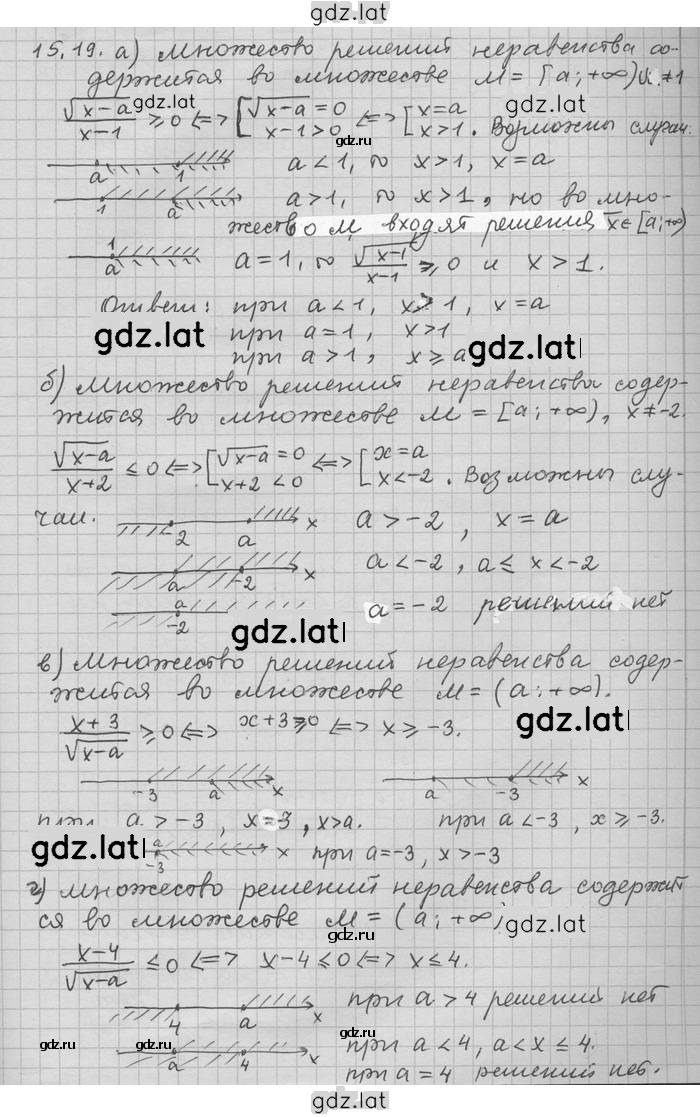 gdz.lat
15,19. а) множество решений неравенства со-
держится во множестве M = [a; +∞) и x ≠ 1
gdz.lat
√(x-a)/(x-1) ≥ 0 <=> [√(x-a) = 0, x-1 > 0 <=> [x = a, x > 1. Возможны случаи.
gdz.ru
a 1 a < 1, то x > 1, x = a
1 a a > 1, то x > 1, но во мно-
жество M входят решения x ∈ [a; +∞)
1 a a = 1, то √(x-1)/(x-1) ≥ 0 и x > 1.
Ответ: при a < 1, x > 1, x = a
при a = 1, x > 1
gdz.lat gdz.lat
при a > 1, x ≥ a
б) множество решений неравенства содер-
жится во множестве M = [a; +∞), x ≠ -2.
gdz.ru
√(x-a)/(x+2) ≤ 0 <=> [√(x-a) = 0, x+2 < 0 <=> [x = a, x < -2. Возможны слу-
чаи. -2 a x a > -2, x = a
a -2 x a < -2, a ≤ x < -2
a -2 a = -2 решений нет
gdz.lat
в) множество решений неравенства содер-
жится во множестве M = (a; +∞).
(x+3)/√(x-a) ≥ 0 <=> x+3 ≥ 0 <=> x ≥ -3.
gdz.lat
-3 a x a -3 x
при a > -3, x = 3, x > a. при a < -3, x ≥ -3.
gdz.lat
a -3 x при a = -3, x > -3
г) множество решений неравенства содержит
ся во множестве M = (a; +∞)
gdz.lat
gdz.ru
(x-4)/√(x-a) ≤ 0 <=> x-4 ≤ 0 <=> x ≤ 4.
4 a x при a > 4 решений нет
gdz.ru gdz.ru
a 4 x при a < 4, a < x ≤ 4.
при a = 4 решений нет.
gdz.lat